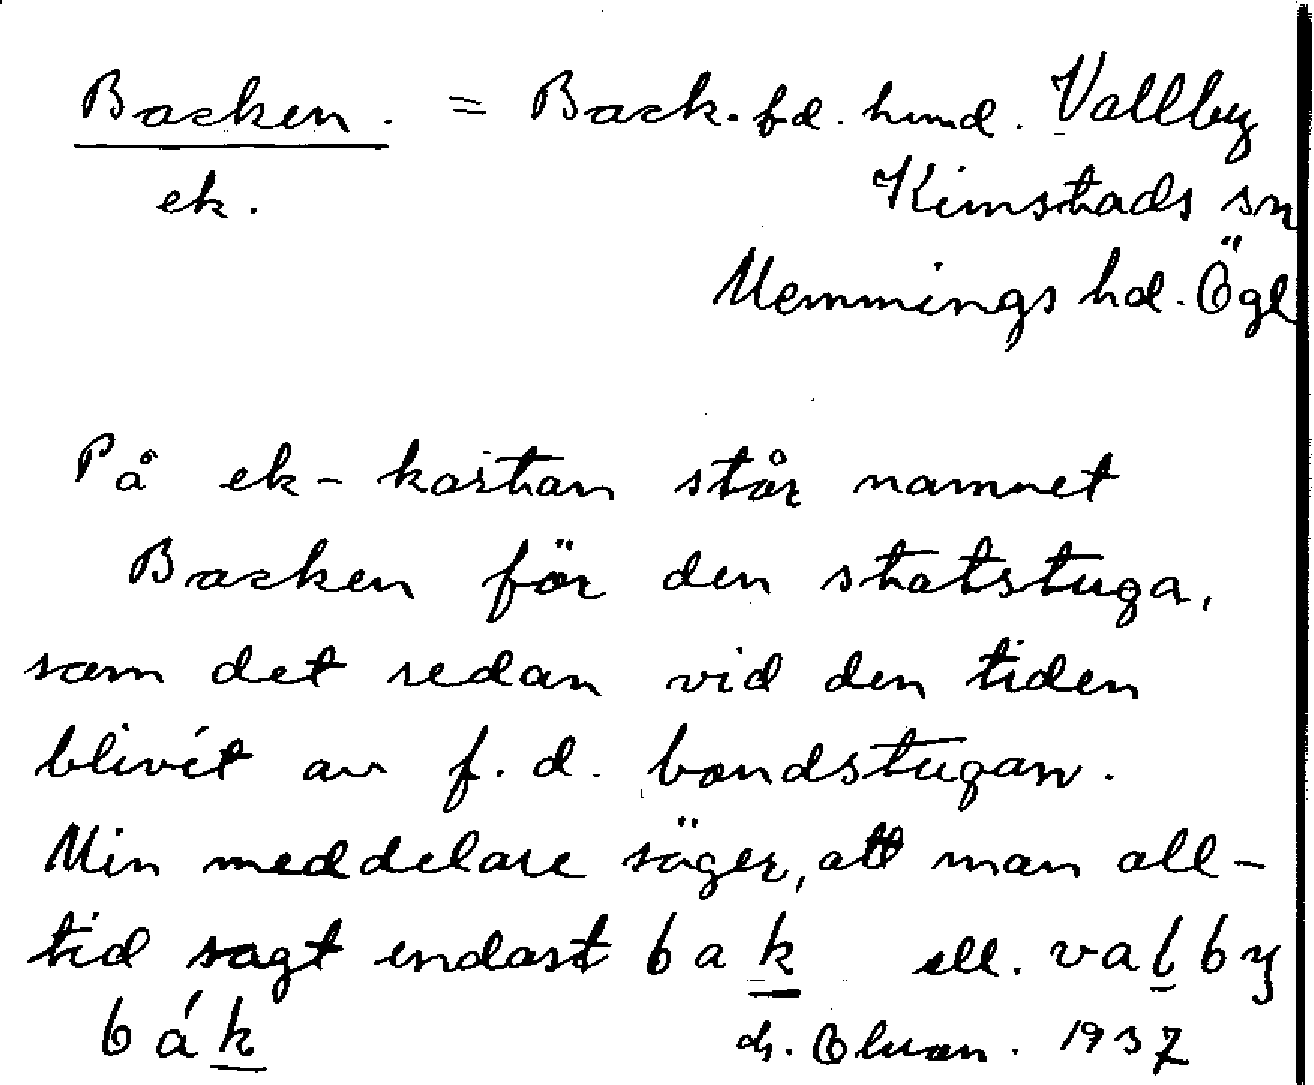 Backen. = Back. fd. hmd. Vallby
ek. Kimstads sn
Memmings hd. Ögl
På ek-kartan står namnet
Backen för den statstuga,
som det redan vid den tiden
blivit av f.d. bondstugan.
Min meddelare säger, att man all-
tid sagt endast bak ell. valby
bák 1937